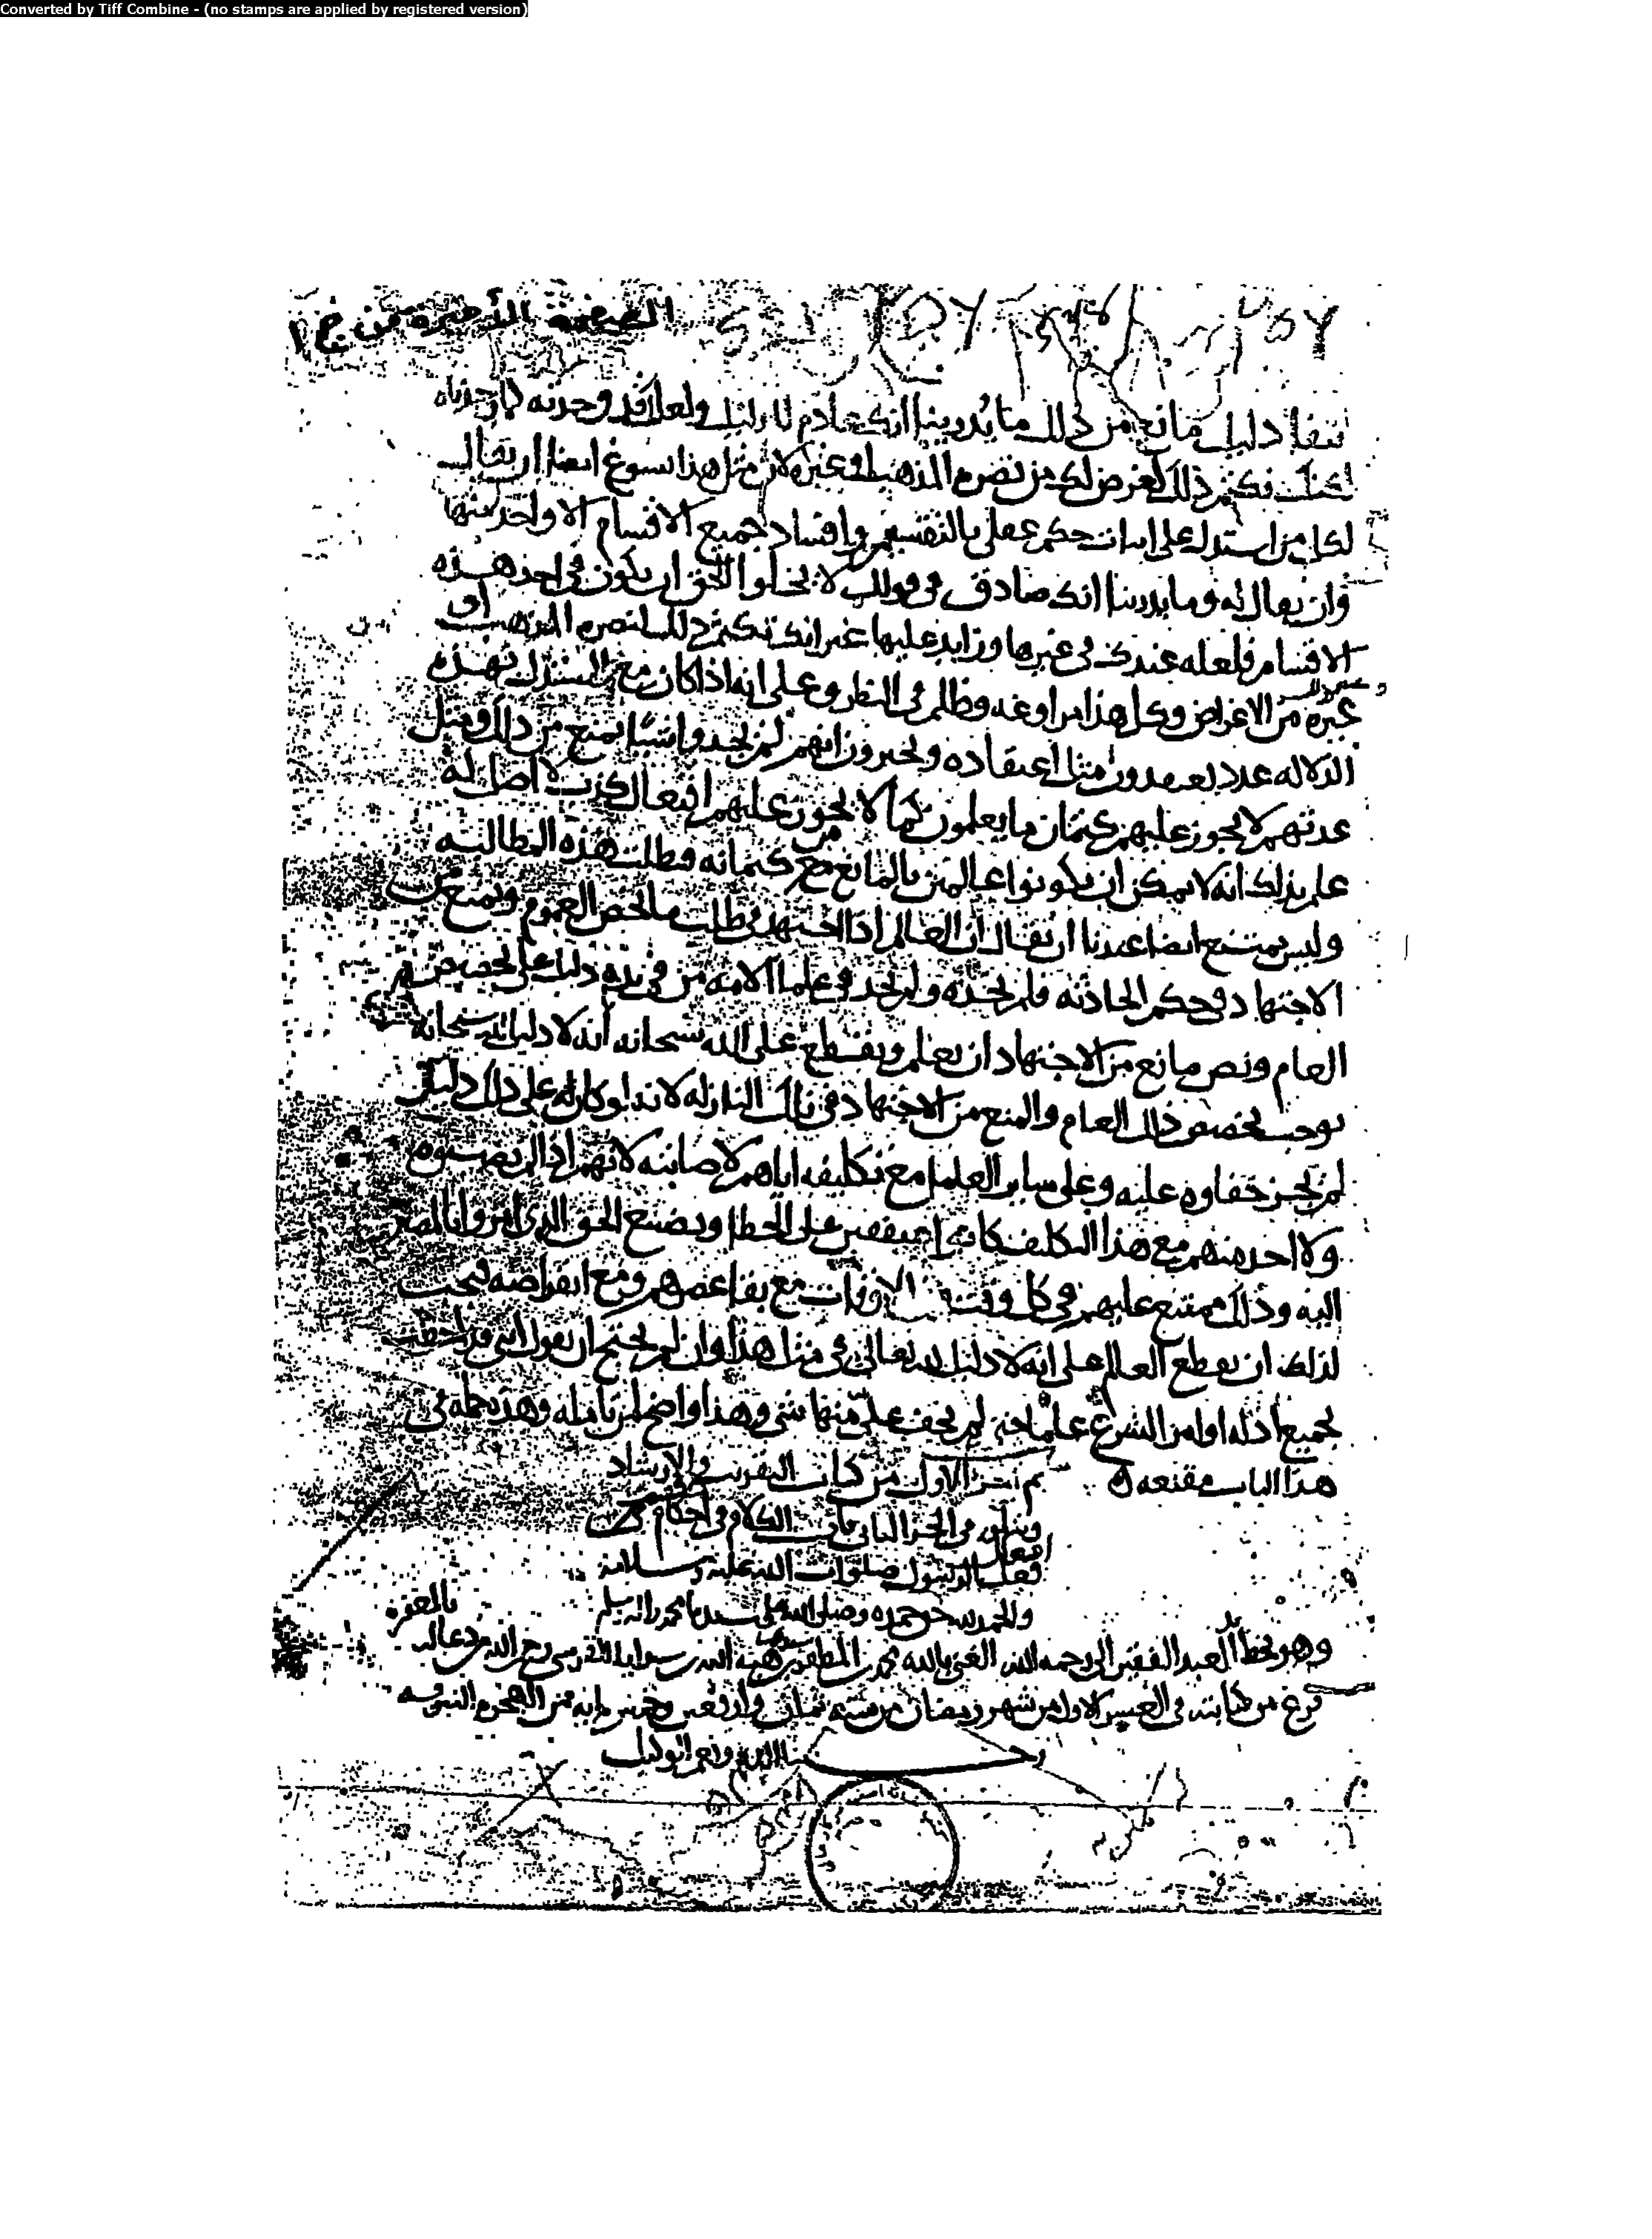 Converted by Tiff Combine - (no stamps are applied by registered version)
الصفحة الأخيرة من ج ١
دليل مانع من ذلك ما يدرينا انك عادم للدليل ولعلك قد وجدته
تكتم ذلك لغرض لك من نصرة المذهب او غيره لان مثل هذا يسوغ ايضا ان يقال
لكل من استدل على اثبات حكم عقلي بالتقسيم وافساد جميع الاقسام الا واحد منها
وان يقال له وما يدرينا انك صادق في قولك لا يخلوا الحق ان يكون في احد هذه
الاقسام فلعله عندك في غيرها وزايد عليها غير انك تكتم ذلك لنصرة المذهب او
غيره من الاغراض وكل هذا مراوغه وظلم في النظر وعلى انه اذا كان مع المستدل بهذه
الدلاله عدد يعتقدون مثل اعتقاده ويخبرون انهم لم يجدوا شيئا يمنع من ذلك ومثل
عدتهم لا يجوز عليهم كتمان ما يعلمون كما لا يجوز عليهم افتعال كذب لا اصل له
علم بذلك انه لا يمكن ان يكونوا عالمين بالمانع مع كتمانه فبطلت هذه المطالبه
وليس يمتنع ايضا عندنا ان يقال ان العالم اذا اجتهد في طلب ما يخص العموم ويمنع من
الاجتهاد في حكم الحادثه فلم يجده ولم يجد في علما الامه من في يده دليل على تخصيص
العام ونص مانع من الاجتهاد ان يعلم ويقطع على الله سبحانه انه لا دليل لله سبحانه
يوجب تخصيص ذلك العام والمنع من الاجتهاد في تلك النازله لانه لو كان له على ذلك دليل
لم يجز خفاوه عليه وعلى ساير العلما مع تكليفه اياهم لاصابته لانهم اذا لم يصيبوه
ولا احد منهم مع هذا التكليف كانوا متفقين على الخطا وتضييع الحق الذي امروا بالمصير
اليه وذلك ممتنع عليهم في كل وقت من الاوقات مع بقا عصرهم ومع انقراضه فيجب
لذلك ان يقطع العالم على انه لا دليل لله تعالى في مثل هذا وان لم يحتج ان يقول انني قد احطت
بجميع ادله اوامر الشرع علما حتى لم يخف علي منها شي وهذا واضح لمن تامله وهذه جمله في
هذا الباب مقنعه
تم الجزء الاول من كتاب التقريب والارشاد
ويتلوه في الجزء الثاني باب الكلام في احكام
افعال
الرسول صلوات الله عليه وسلامه
والحمد لله حق حمده وصلى الله على سيدنا محمد واله وسلم
وهو بخط العبد الفقير الى رحمه الله الغني بالله محمد بن المظفر بن هبة الله
فرغ من كتابته في العشر الاول من شهر رمضان من سنه ثمان واربعين وخمس مايه من الهجره النبويه
حسبنا الله ونعم الوكيل